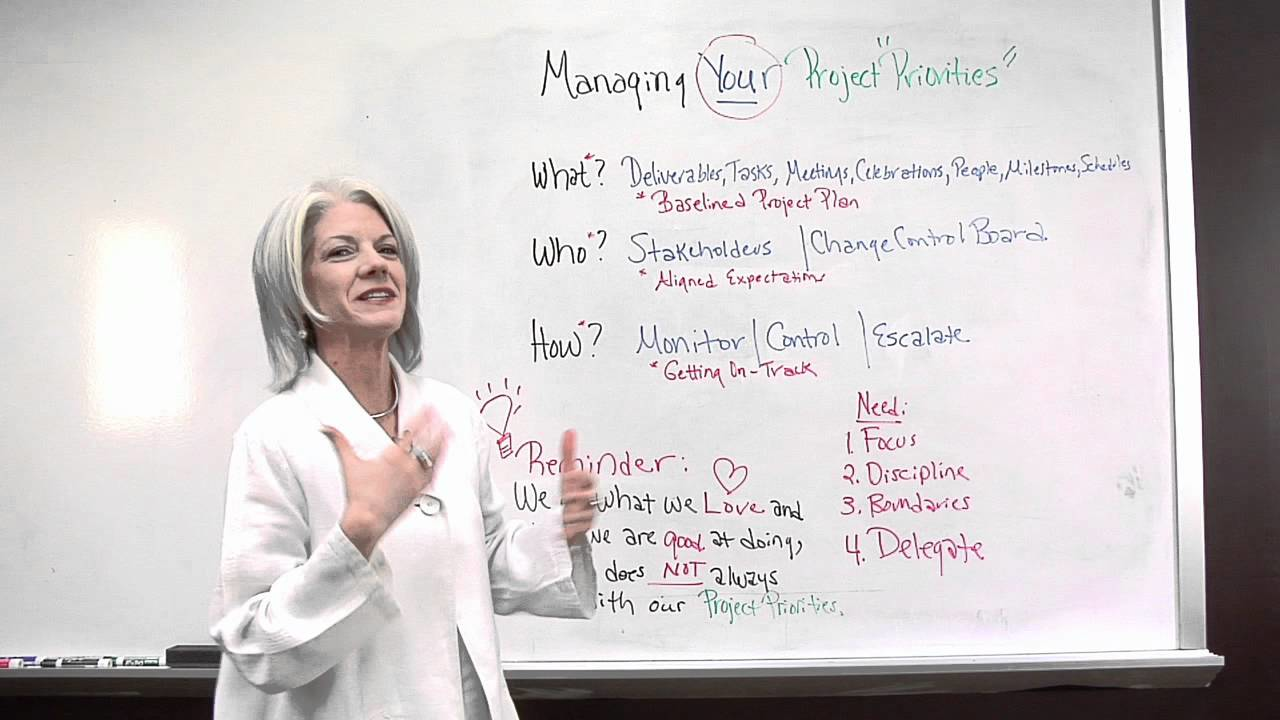 Managing Your Project "Priorities"
What*? Deliverables, Tasks, Meetings, Celebrations, People, Milestones, Schedules
* Baselined Project Plan
Who*? Stakeholders | Change Control Board
* Aligned Expectations
How*? Monitor | Control | Escalate
* Getting On-Track
Need:
1. Focus
2. Discipline
3. Boundaries
4. Delegate
Reminder:
We what we Love and
we are good at doing,
does NOT always
with our Project Priorities.